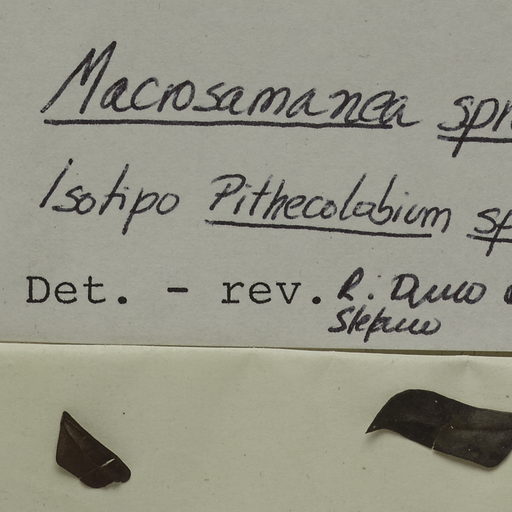 Macrosamanea spr
Isotipo Pithecolobium sp
Det. - rev. R. Duno
Stefano